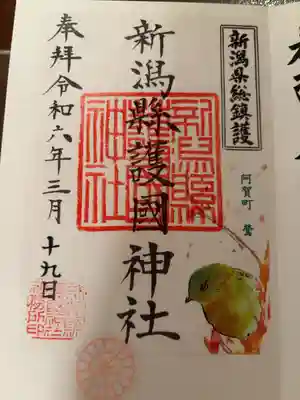 新潟県総鎮護
阿賀町 鶯
新潟縣護國神社
新潟縣
神社
奉拝令和六年三月十九日